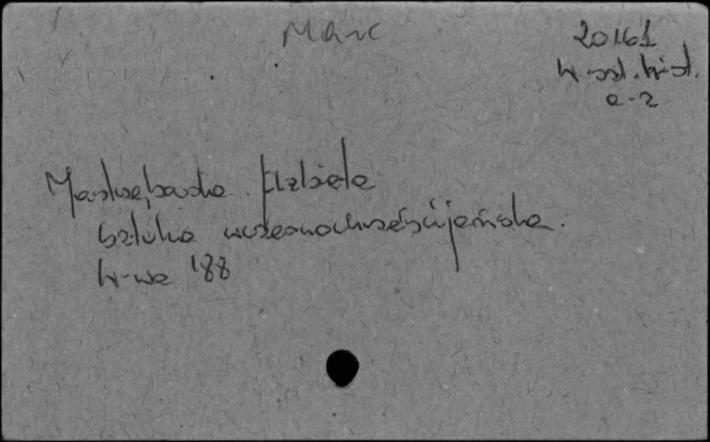 Marc
20161
W-szt. hist.
a-z
Jastrzębowska Elżbieta
Sztuka wczesnochrześcijańska.
W-wa '88